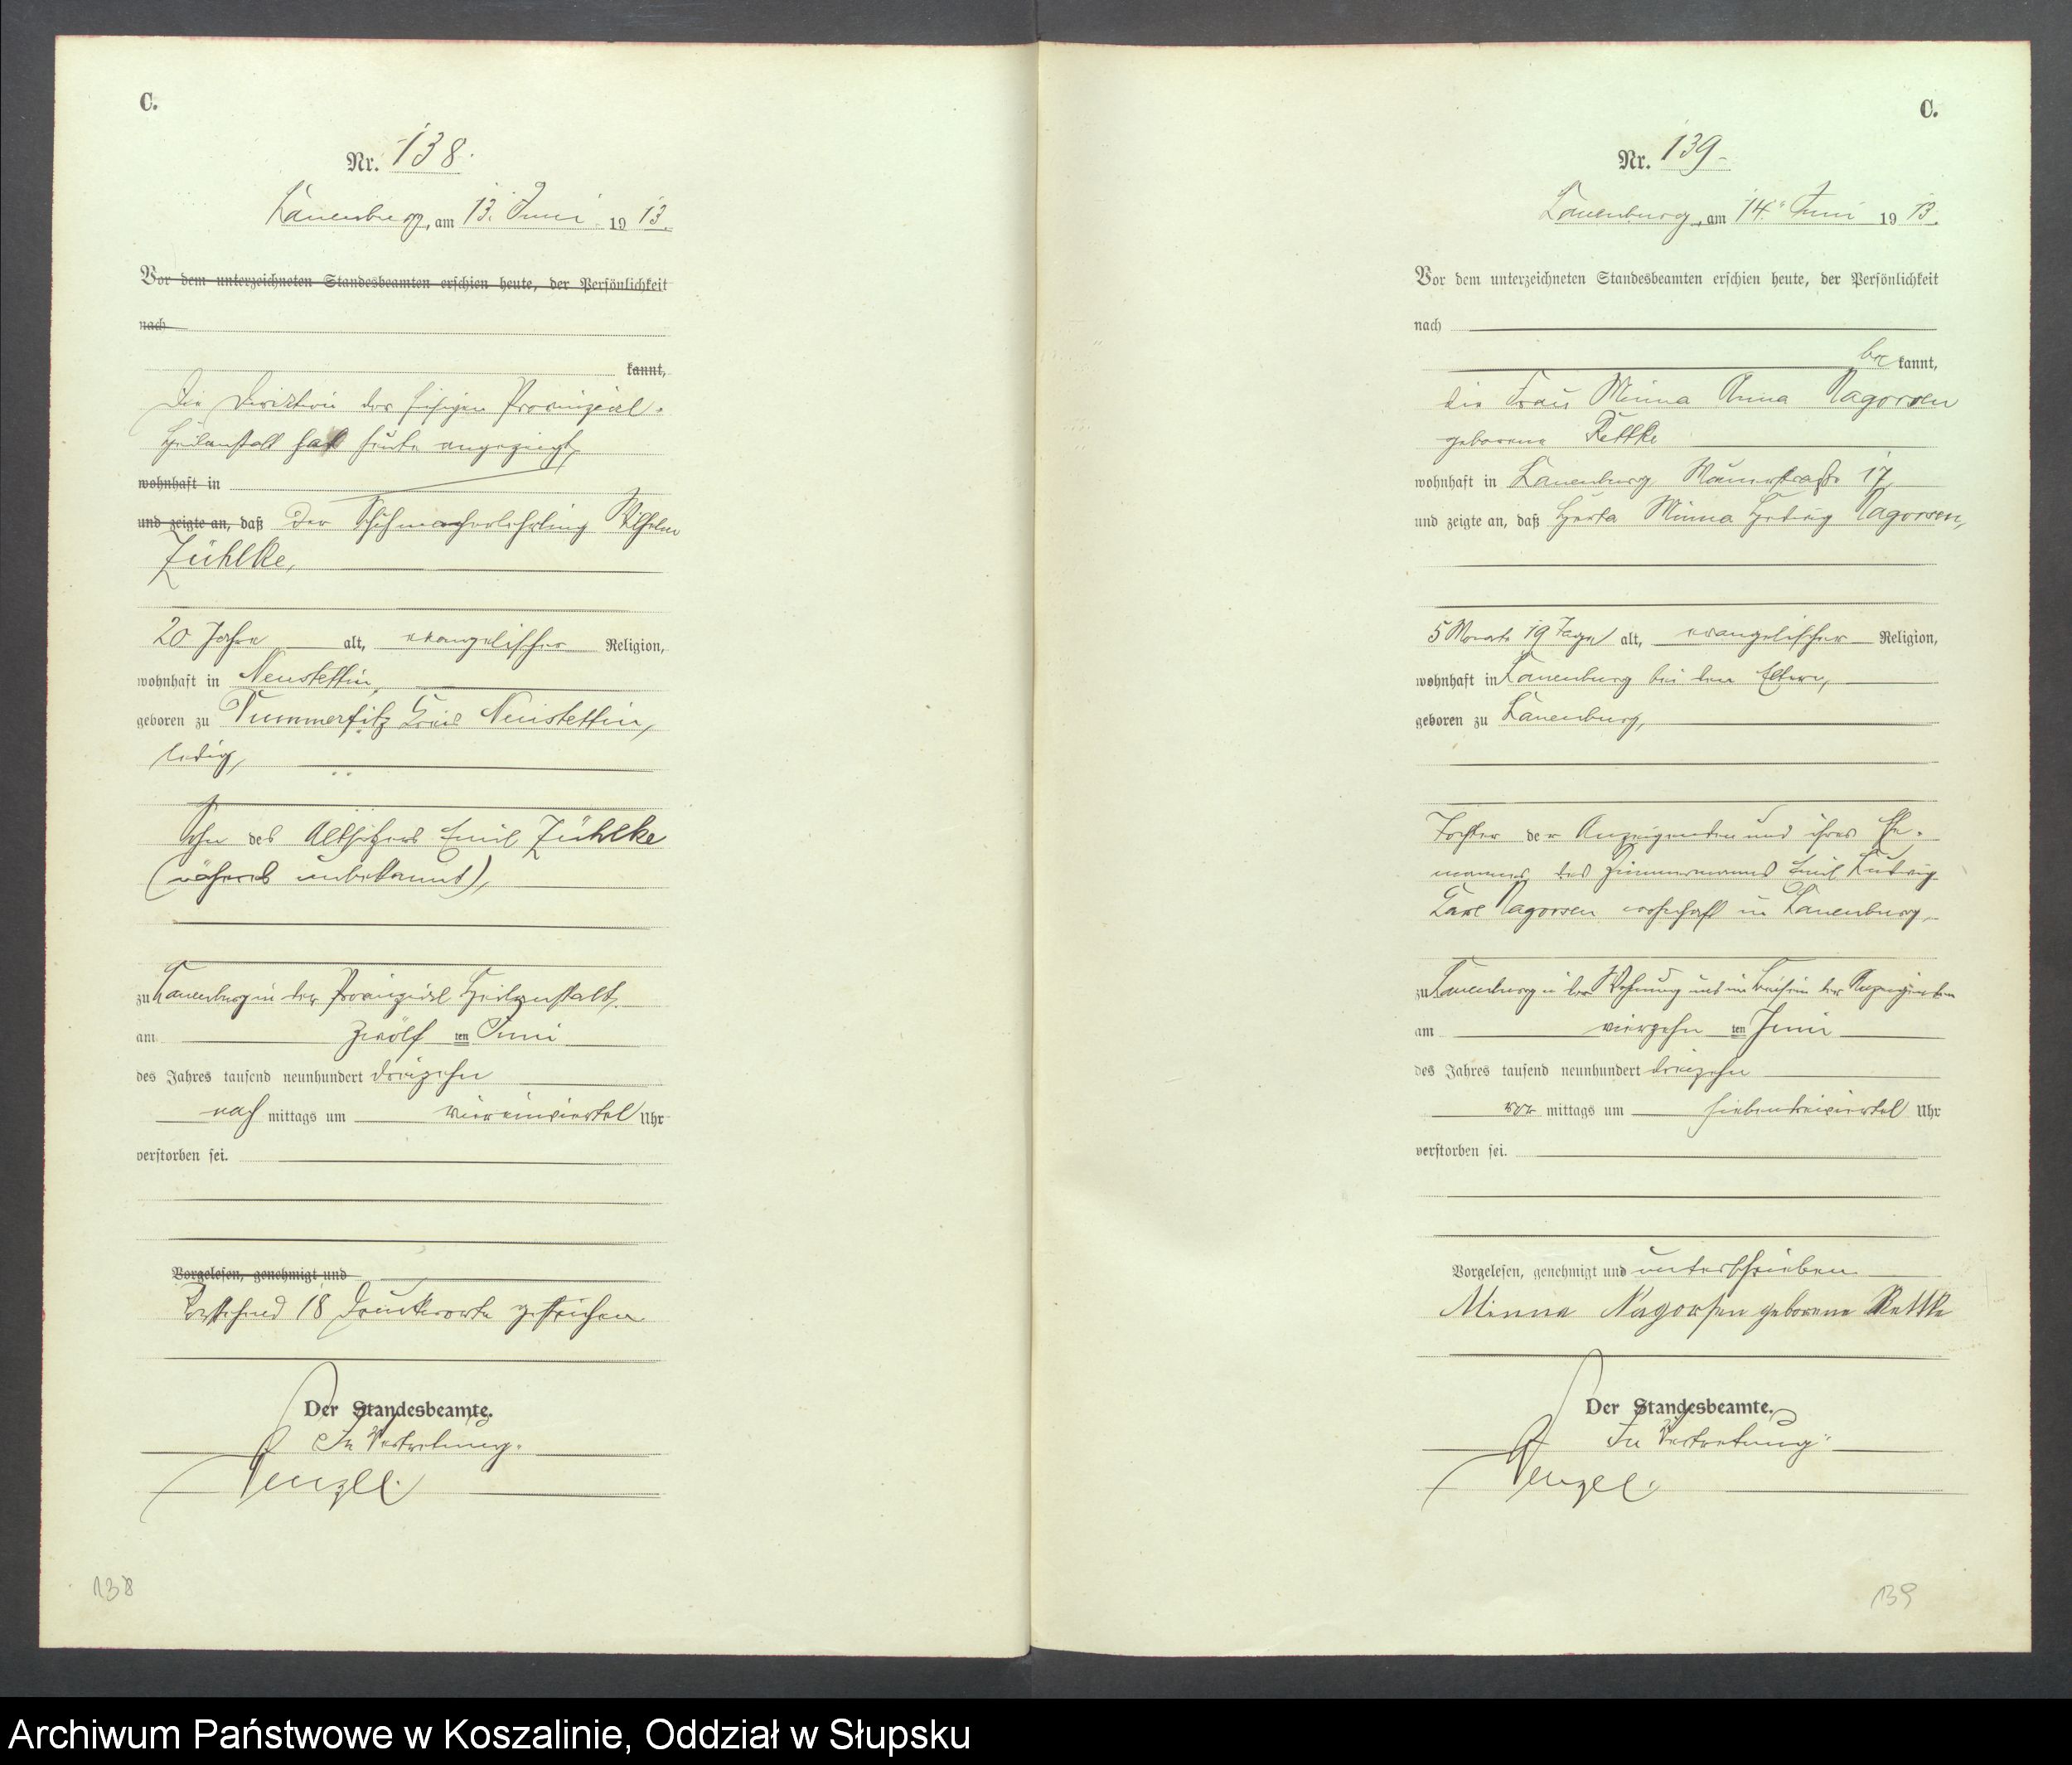 C.
Nr. 138.
Lauenburg, am 13. Juni 1913.
Vor dem unterzeichneten Standesbeamten erschien heute, der Persönlichkeit
nach
kannt,
Die Direktion der hiesigen Provinzial-
Heilanstalt hat heute angezeigt,
wohnhaft in
und zeigte an, daß der Schuhmacherlehrling Wilhelm
Zühlke,
20 Jahre alt, evangelischer Religion,
wohnhaft in Neustettin,
geboren zu Tummerfitz Kreis Neustettin,
ledig,
Sohn des Altsitzers Emil Zühlke
(näheres unbekannt),
zu Lauenburg in der Provinzial Heilanstalt,
am zwölften Juni
des Jahres tausend neunhundert dreizehn
nachmittags um viereinviertel Uhr
verstorben sei.
Vorgelesen, genehmigt und
Vorstehend 18 Druckworte gestrichen.
Der Standesbeamte.
In Vertretung.
Wenzel.
138
C.
Nr. 139.
Lauenburg, am 14. Juni 1913.
Vor dem unterzeichneten Standesbeamten erschien heute, der Persönlichkeit
nach
bekannt,
die Frau Minna Anna Nagorsen
geborene Rettke
wohnhaft in Lauenburg Mauerstraße 17,
und zeigte an, daß Herta Minna Hedwig Nagorsen,
5 Monate 19 Tage alt, evangelischer Religion,
wohnhaft in Lauenburg bei den Eltern,
geboren zu Lauenburg,
Tochter der Anzeigenden und ihres Ehe-
mannes, des Zimmermanns Emil Ludwig
Karl Nagorsen wohnhaft in Lauenburg,
zu Lauenburg in der Wohnung und im Beisein der Anzeigenden
am vierzehnten Juni
des Jahres tausend neunhundert dreizehn
vormittags um siebendreiviertel Uhr
verstorben sei.
Vorgelesen, genehmigt und unterschrieben
Minna Nagorsen geborene Rettke
Der Standesbeamte.
In Vertretung.
Wenzel.
139
Archiwum Państwowe w Koszalinie, Oddział w Słupsku